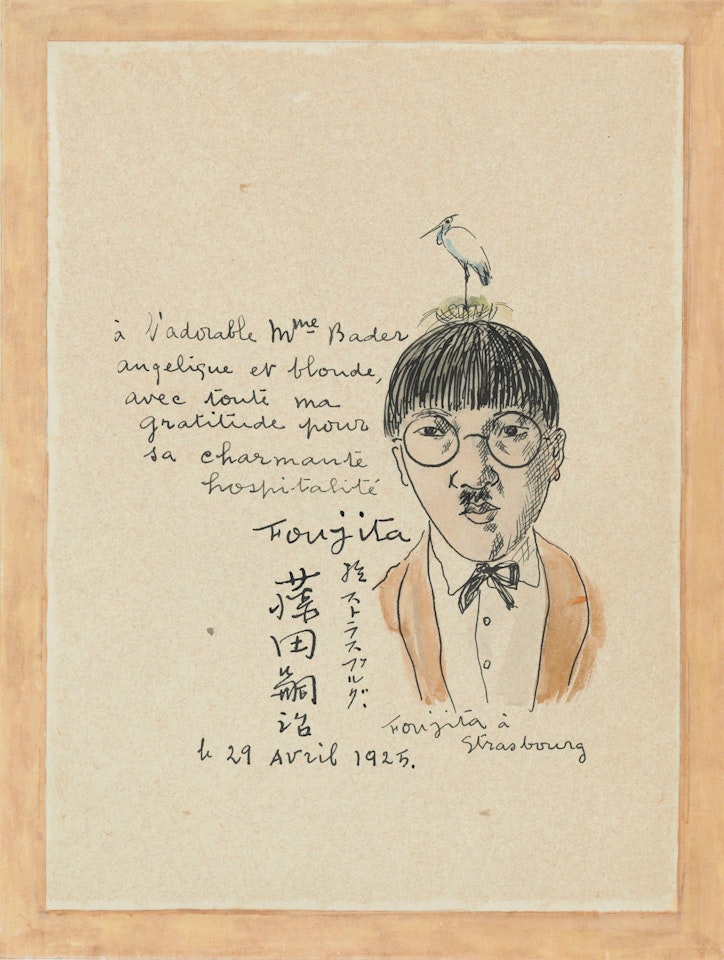 à l'adorable Mme Bader
angelique et blonde,
avec toute ma
gratitude pour
sa charmante
hospitalité
Foujita
藤田嗣治
於ストラスブルグ.
le 29 Avril 1925.
Foujita à
Strasbourg